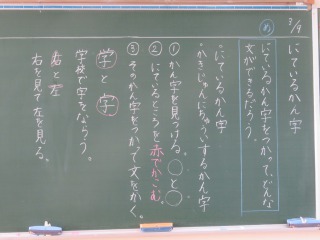 3/9
にているかん字
め
にているかん字をつかって、どんな
文ができるだろう。
・にているかん字
・かきじゅんにちゅういするかん字
①かん字を見つける。○と○
②にているところを赤でかこむ。
③そのかん字をつかって文をかく。
学と字
学校で字をならう。
右と左
右を見て左を見る。